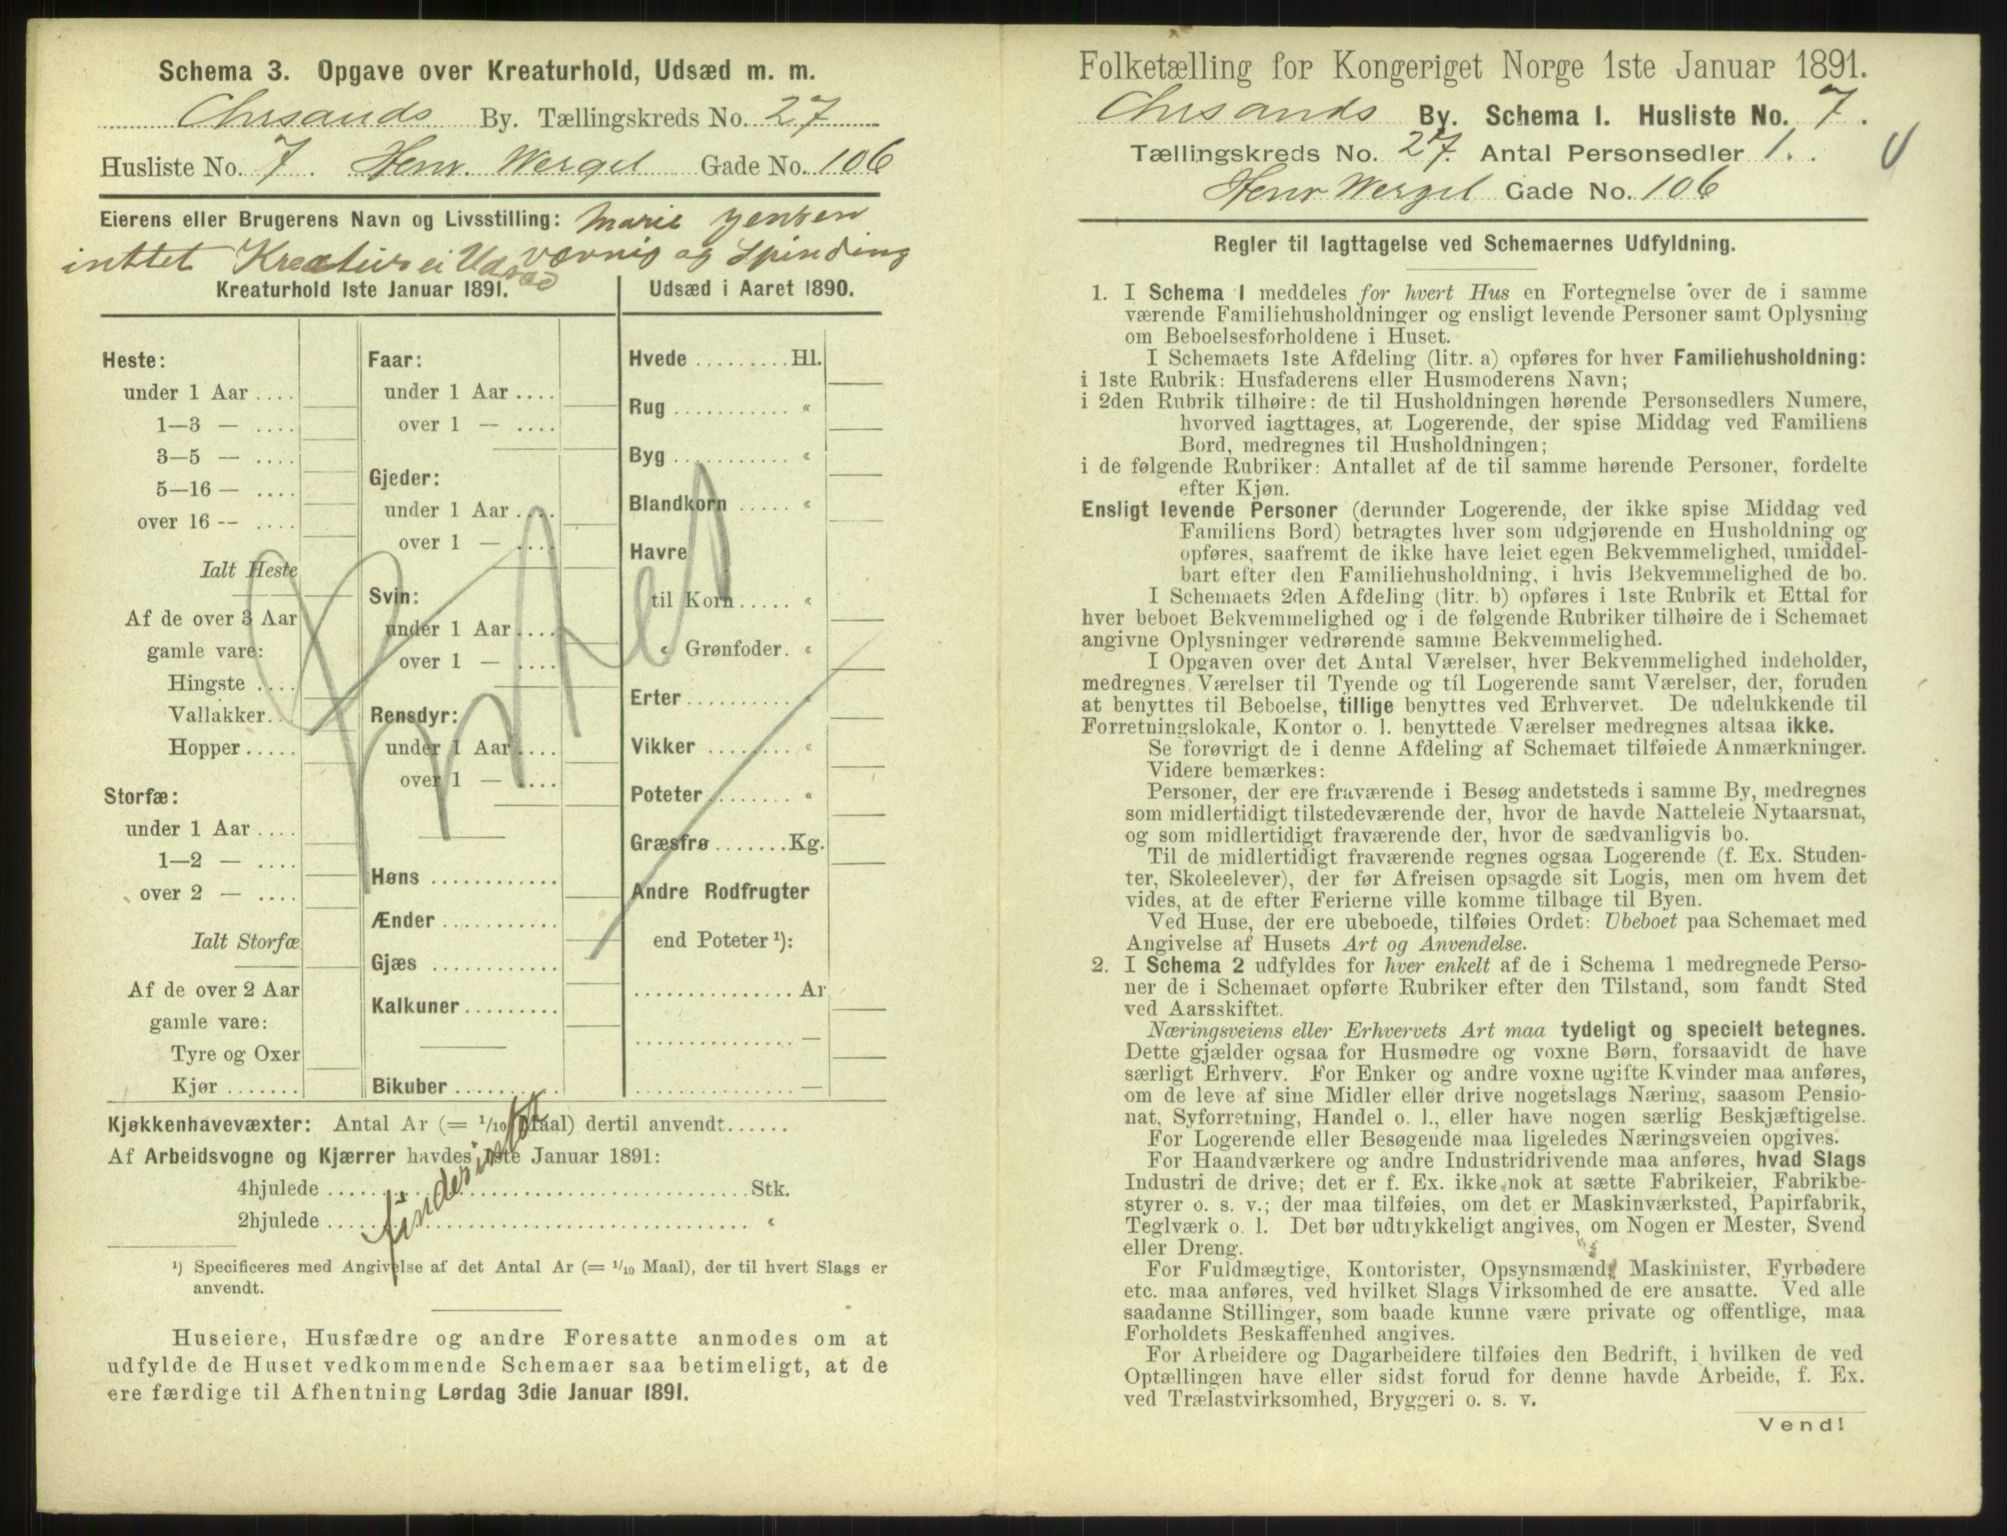 Schema 3. Opgave over Kreaturhold, Udsæd m. m.
Chrsands By. Tællingskreds No. 27
Husliste No. 7. Henr. Wergel Gade No. 106
Eierens eller Brugerens Navn og Livsstilling: Marie Jensen
inttet Kreatur ei Udsæd vævnig og Spinding
Kreaturhold 1ste Januar 1891.
Heste:
under 1 Aar ....
1—3 — ....
3—5 — ....
5—16 — ....
over 16 -- ....
Ialt Heste
Af de over 3 Aar
gamle vare:
Hingste ....
Vallakker..
Hopper .....
Storfæ:
under 1 Aar ....
1—2 — ....
over 2 — ....
Ialt Storfæ
Af de over 2 Aar
gamle vare:
Tyre og Oxer
Kjør .......
Faar:
under 1 Aar ....
over 1 — ....
Gjeder:
under 1 Aar ....
over 1 — ....
Svin:
under 1 Aar ....
over 1 — ....
Rensdyr:
under 1 Aar ....
over 1 — ....
Høns ............
Ænder ...........
Gjæs ............
Kalkuner .........
Bikuber ..........
Udsæd i Aaret 1890.
Hvede ......... Hl.
Rug ........... «
Byg ........... «
Blandkorn ..... «
Havre
til Korn ..... «
« Grønfoder. «
Erter .......... «
Vikker ........ «
Poteter ........ «
Græsfrø ....... Kg.
Andre Rodfrugter
end Poteter ¹):
............... Ar
............... —
............... —
Kjøkkenhavevæxter: Antal Ar (= 1/10 Maal) dertil anvendt......
Af Arbeidsvogne og Kjærrer havdes 1ste Januar 1891:
4hjulede ........ Stk.
2hjulede ........ «
findes intet
¹) Specificeres med Angivelse af det Antal Ar (= 1/10 Maal), der til hvert Slags er
anvendt.
Huseiere, Husfædre og andre Foresatte anmodes om at
udfylde de Huset vedkommende Schemaer saa betimeligt, at de
ere færdige til Afhentning Lørdag 3die Januar 1891.
Folketælling for Kongeriget Norge 1ste Januar 1891.
Chrsands By. Schema I. Husliste No. 7.
Tællingskreds No. 27. Antal Personsedler 1.
Henr Wergel Gade No. 106
Regler til Iagttagelse ved Schemaernes Udfyldning.
1. I Schema 1 meddeles for hvert Hus en Fortegnelse over de i samme
værende Familiehusholdninger og ensligt levende Personer samt Oplysning
om Beboelsesforholdene i Huset.
I Schemaets 1ste Afdeling (litr. a) opføres for hver Familiehusholdning:
i 1ste Rubrik: Husfaderens eller Husmoderens Navn;
i 2den Rubrik tilhøire: de til Husholdningen hørende Personsedlers Numere,
hvorved iagttages, at Logerende, der spise Middag ved Familiens
Bord, medregnes til Husholdningen;
i de følgende Rubriker: Antallet af de til samme hørende Personer, fordelte
efter Kjøn.
Ensligt levende Personer (derunder Logerende, der ikke spise Middag ved
Familiens Bord) betragtes hver som udgjørende en Husholdning og
opføres, saafremt de ikke have leiet egen Bekvemmelighed, umiddel-
bart efter den Familiehusholdning, i hvis Bekvemmelighed de bo.
I Schemaets 2den Afdeling (litr. b) opføres i 1ste Rubrik et Ettal for
hver beboet Bekvemmelighed og i de følgende Rubriker tilhøire de i Schemaet
angivne Oplysninger vedrørende samme Bekvemmelighed.
I Opgaven over det Antal Værelser, hver Bekvemmelighed indeholder,
medregnes Værelser til Tyende og til Logerende samt Værelser, der, foruden
at benyttes til Beboelse, tillige benyttes ved Erhvervet. De udelukkende til
Forretningslokale, Kontor o. l. benyttede Værelser medregnes altsaa ikke.
Se forøvrigt de i denne Afdeling af Schemaet tilføiede Anmærkninger.
Videre bemærkes:
Personer, der ere fraværende i Besøg andetsteds i samme By, medregnes
som midlertidigt tilstedeværende der, hvor de havde Natteleie Nytaarsnat,
og som midlertidigt fraværende der, hvor de sædvanligvis bo.
Til de midlertidigt fraværende regnes ogsaa Logerende (f. Ex. Studen-
ter, Skoleelever), der før Afreisen opsagde sit Logis, men om hvem det
vides, at de efter Ferierne ville komme tilbage til Byen.
Ved Huse, der ere ubeboede, tilføies Ordet: Ubeboet paa Schemaet med
Angivelse af Husets Art og Anvendelse.
2. I Schema 2 udfyldes for hver enkelt af de i Schema 1 medregnede Perso-
ner de i Schemaet opførte Rubriker efter den Tilstand, som fandt Sted
ved Aarsskiftet.
Næringsveiens eller Erhvervets Art maa tydeligt og specielt betegnes.
Dette gjælder ogsaa for Husmødre og voxne Børn, forsaavidt de have
særligt Erhverv. For Enker og andre voxne ugifte Kvinder maa anføres,
om de leve af sine Midler eller drive nogetslags Næring, saasom Pensio-
nat, Syforretning, Handel o. l., eller have nogen særlig Beskjæftigelse.
For Logerende eller Besøgende maa ligeledes Næringsveien opgives.
For Haandværkere og andre Industridrivende maa anføres, hvad Slags
Industri de drive; det er f. Ex. ikke nok at sætte Fabrikeier, Fabrikbe-
styrer o. s. v.; der maa tilføies, om det er Maskinværksted, Papirfabrik,
Teglværk o. l. Det bør udtrykkeligt angives, om Nogen er Mester, Svend
eller Dreng.
For Fuldmægtige, Kontorister, Opsynsmænd, Maskinister, Fyrbødere
etc. maa anføres, ved hvilket Slags Virksomhed de ere ansatte. Ved alle
saadanne Stillinger, som baade kunne være private og offentlige, maa
Forholdets Beskaffenhed angives.
For Arbeidere og Dagarbeidere tilføies den Bedrift, i hvilken de ved
Optællingen have eller sidst forud for denne havde Arbeide, f. Ex.
ved Trælastvirksomhed, Bryggeri o. s. v.
Vend!